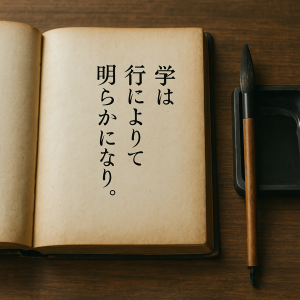 学は
行によりて
明らかになり。